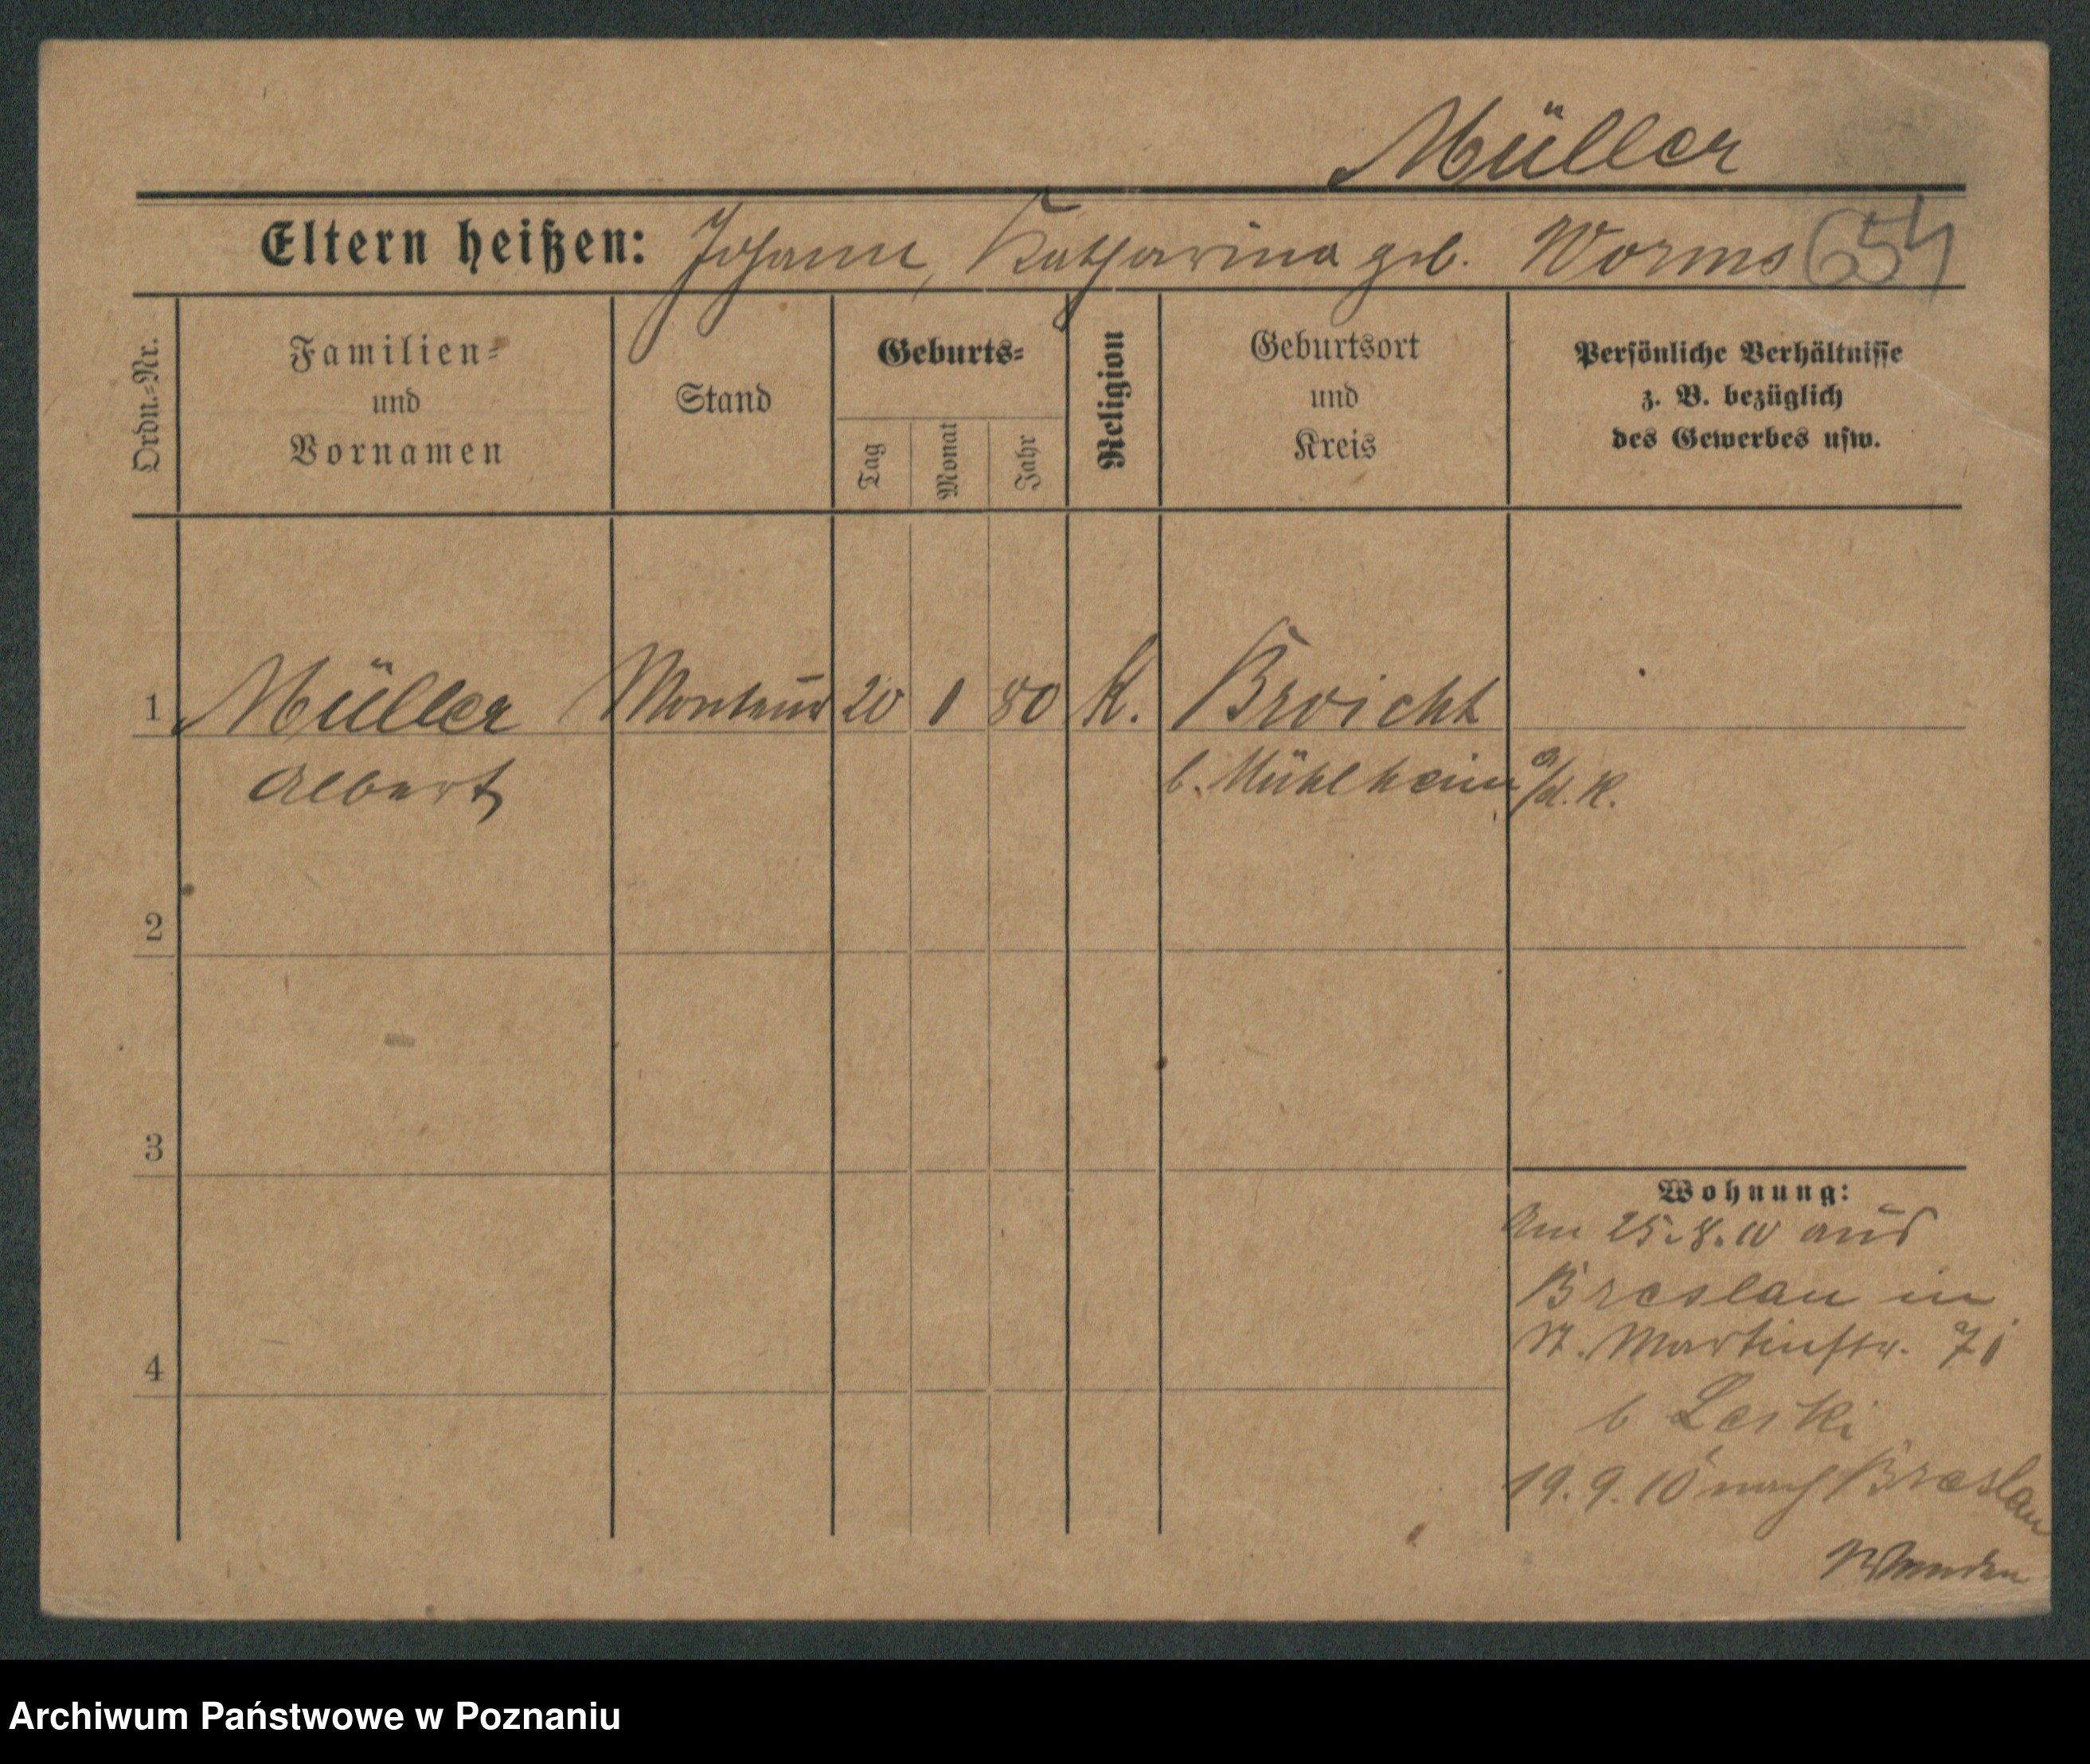 Müller
Eltern heißen: Johann, Katharina geb. Worms 654
Ordn.-Nr.
Familien-
und
Vornamen
Stand
Geburts-
Tag
Monat
Jahr
Religion
Geburtsort
und
Kreis
Persönliche Verhältnisse
z. B. bezüglich
des Gewerbes usw.
1 Müller Monteur 20 1 80 K. Broicht
Albert b. Mühlheim a/d. R.
2
3
4
Wohnung:
Am 25.8.10 aus
Breslau in
St. Martinstr. 71
b Leski
19.9.10 nach Breslau